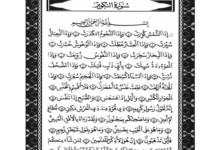 سُورَةُ التَّكْوِيرِ
بِسْمِ اللَّهِ الرَّحْمَٰنِ الرَّحِيمِ
إِذَا الشَّمْسُ كُوِّرَتْ وَإِذَا النُّجُومُ انكَدَرَتْ وَإِذَا الْجِبَالُ
سُيِّرَتْ وَإِذَا الْعِشَارُ عُطِّلَتْ وَإِذَا الْوُحُوشُ حُشِرَتْ
وَإِذَا الْبِحَارُ سُجِّرَتْ وَإِذَا النُّفُوسُ زُوِّجَتْ وَإِذَا
الْمَوْءُودَةُ سُئِلَتْ بِأَيِّ ذَنبٍ قُتِلَتْ وَإِذَا الصُّحُفُ نُشِرَتْ
وَإِذَا السَّمَاءُ كُشِطَتْ وَإِذَا الْجَحِيمُ سُعِّرَتْ وَإِذَا الْجَنَّةُ
أُزْلِفَتْ عَلِمَتْ نَفْسٌ مَّا أَحْضَرَتْ فَلَا أُقْسِمُ بِالْخُنَّسِ
الْجَوَارِ الْكُنَّسِ وَاللَّيْلِ إِذَا عَسْعَسَ وَالصُّبْحِ إِذَا تَنَفَّسَ
إِنَّهُ لَقَوْلُ رَسُولٍ كَرِيمٍ ذِي قُوَّةٍ عِندَ ذِي الْعَرْشِ مَكِينٍ
مُّطَاعٍ ثَمَّ أَمِينٍ وَمَا صَاحِبُكُم بِمَجْنُونٍ وَلَقَدْ رَآهُ بِالْأُفُقِ الْمُبِينِ
وَمَا هُوَ عَلَى الْغَيْبِ بِضَنِينٍ وَمَا هُوَ بِقَوْلِ شَيْطَانٍ رَّجِيمٍ
فَأَيْنَ تَذْهَبُونَ إِنْ هُوَ إِلَّا ذِكْرٌ لِّلْعَالَمِينَ